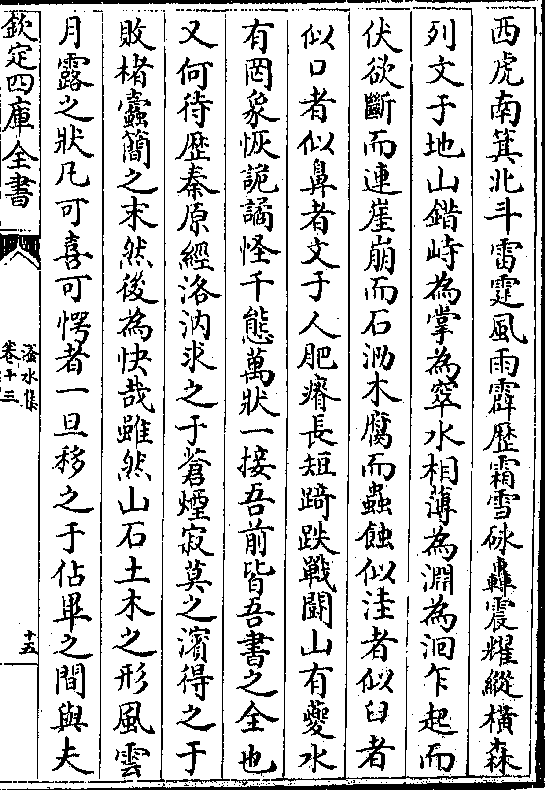 西虎南箕北斗雷霆風雨霹歴霜雪砯轟震耀縱横森
列文于地山錯峙為掌為窣水相薄為淵為洄乍起而
伏欲斷而連崖崩而石泐木腐而蟲蝕似洼者似臼者
似口者似鼻者文于人肥瘠長短踦跌戰鬭山有夔水
有罔象恢詭譎怪千態萬狀一接吾前皆吾書之全也
又何待歴秦原經洛汭求之于蒼煙寂莫之濱得之于
敗楮蠧簡之末然後為快哉雖然山石土木之形風雲
月露之狀凡可喜可愕者一旦移之于佔畢之間與夫
欽定四庫全書
滏水集
卷十三
十五